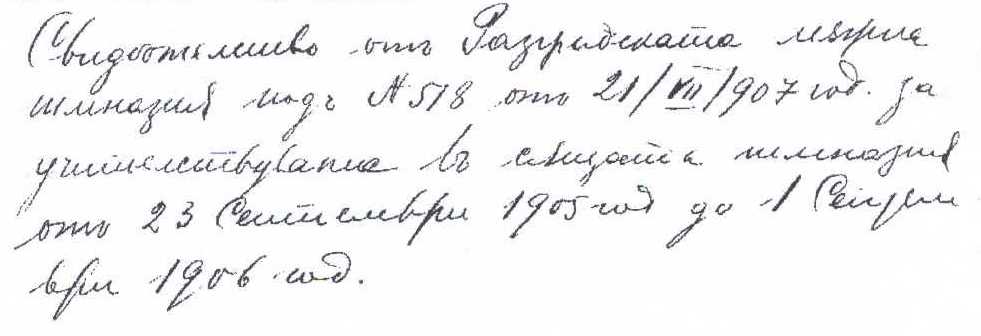 Свидѣтелство отъ Разградската мѫжка
гимназия подъ № 518 отъ 21/VII/907 год. за
учителствувание въ сѫщата гимназия
отъ 23 Септември 1905 год до 1 Септем
ври 1906 год.